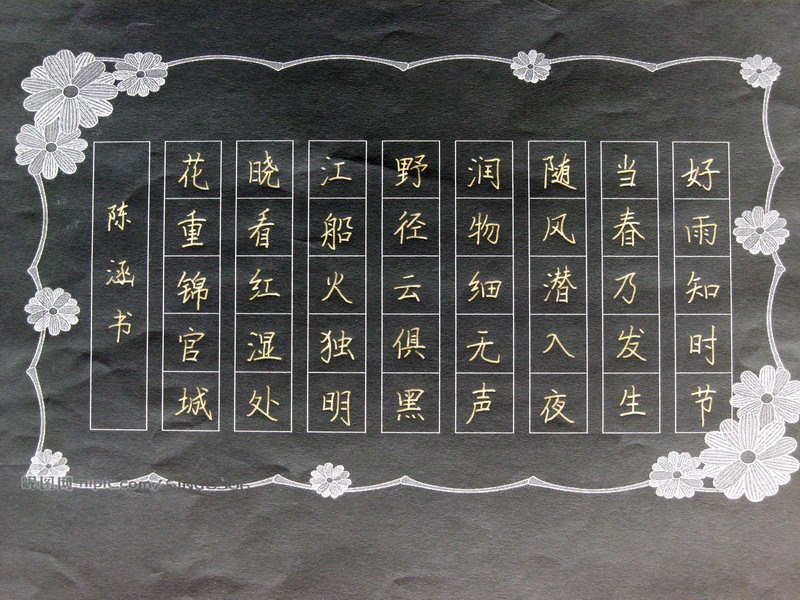 好雨知时节
当春乃发生
随风潜入夜
润物细无声
野径云俱黑
江船火独明
晓看红湿处
花重锦官城
陈涵书
昵图网 nipic.com/